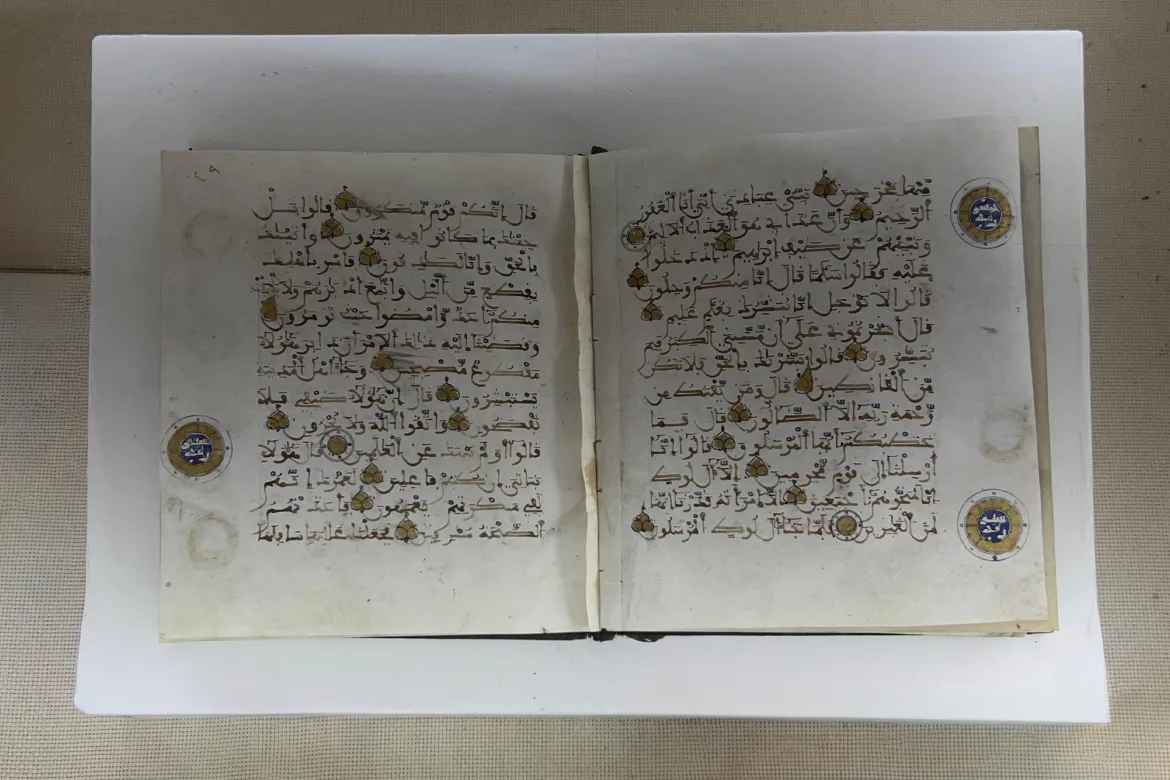 منها بمخرجين نبئ عبادي أني أنا الغفور
الرحيم وأن عذابي هو العذاب الأليم
ونبئهم عن ضيف إبرهيم إذ دخلوا
عليه فقالوا سلما قال إنا منكم وجلون
قالوا لا توجل إنا نبشرك بغلم عليم
قال أبشرتموني على أن مسني الكبر فبم
تبشرون قالوا بشرنك بالحق فلا تكن
من القنطين قال ومن يقنط من
رحمة ربه إلا الضالون قال فما
خطبكم أيها المرسلون قالوا إنا
أرسلنا إلى قوم مجرمين إلا آل لوط
إنا لمنجوهم أجمعين إلا امرأته قدرنا إنها
لمن الغبرين فلما جاء آل لوط المرسلون
قال إنكم قوم منكرون قالوا بل
جئنك بما كانوا فيه يمترون وأتينك
بالحق وإنا لصدقون فأسر بأهلك
بقطع من الليل واتبع أدبرهم ولا يلتفت
منكم أحد وامضوا حيث تؤمرون
وقضينا إليه ذلك الأمر أن دابر هؤلاء
مقطوع مصبحين وجاء أهل المدينة
يستبشرون قال إن هؤلاء ضيفي فلا
تفضحون واتقوا الله ولا تخزون
قالوا أولم ننهك عن العلمين قال هؤلاء
بناتي إن كنتم فاعلين لعمرك إنهم
لفي سكرتهم يعمهون فأخذتهم
الصيحة مشرقين فجعلنا عاليها سافلها